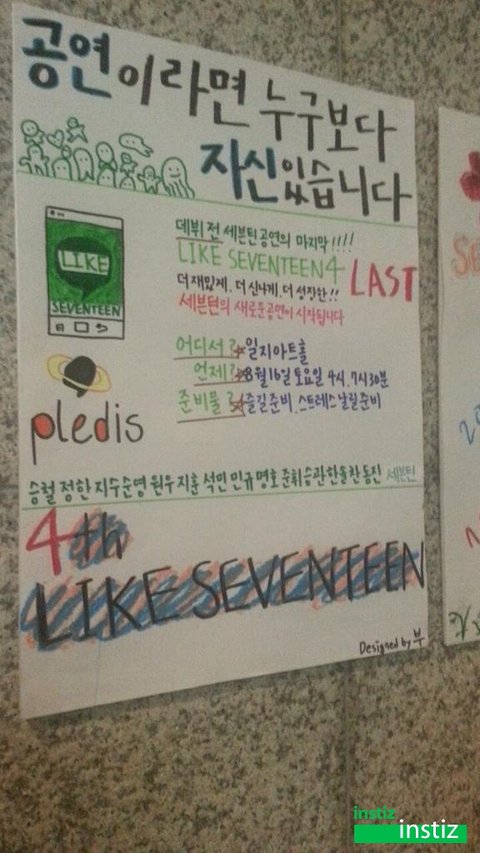 공연이라면 누구보다
자신있습니다
데뷔 전 세븐틴공연의 마지막!!!!
LIKE SEVENTEEN4 LAST
더 재밌게. 더 신나게. 더 성장한!!
세븐틴의 새로운공연이 시작됩니다
LIKE
SEVENTEEN
어디서? 일지아트홀
언제? 8월16일 토요일 4시, 7시30분
준비물? 즐길준비, 스트레스날릴준비
pledis
승철 정한 지수 순영 원우 지훈 석민 민규 명호 준휘 승관 한솔 찬 동진 세븐틴
4th
LIKE SEVENTEEN
Designed by 부
instiz
instiz